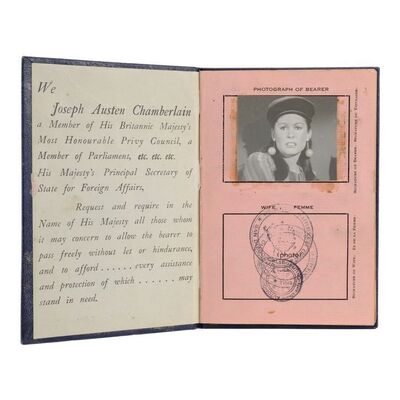 We
Joseph Austen Chamberlain
a Member of His Britannic Majesty's
Most Honourable Privy Council, a
Member of Parliament, etc. etc. etc.
His Majesty's Principal Secretary of
State for Foreign Affairs,
Request and require in the
Name of His Majesty all those whom
it may concern to allow the bearer to
pass freely without let or hindrance,
and to afford ...... every assistance
and protection of which ...... may
stand in need.
PHOTOGRAPH OF BEARER
WIFE. FEMME
(photo)